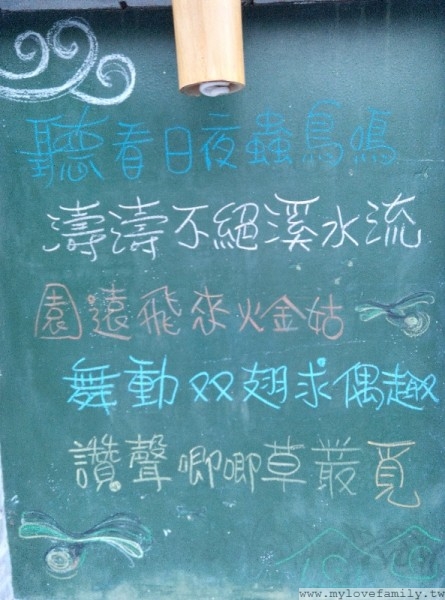 聽看日夜蟲鳥鳴
濤濤不絕溪水流
園遠飛來火金姑
舞動双翅求偶趣
讚聲唧唧草叢覓
www.mylovefamily.tw